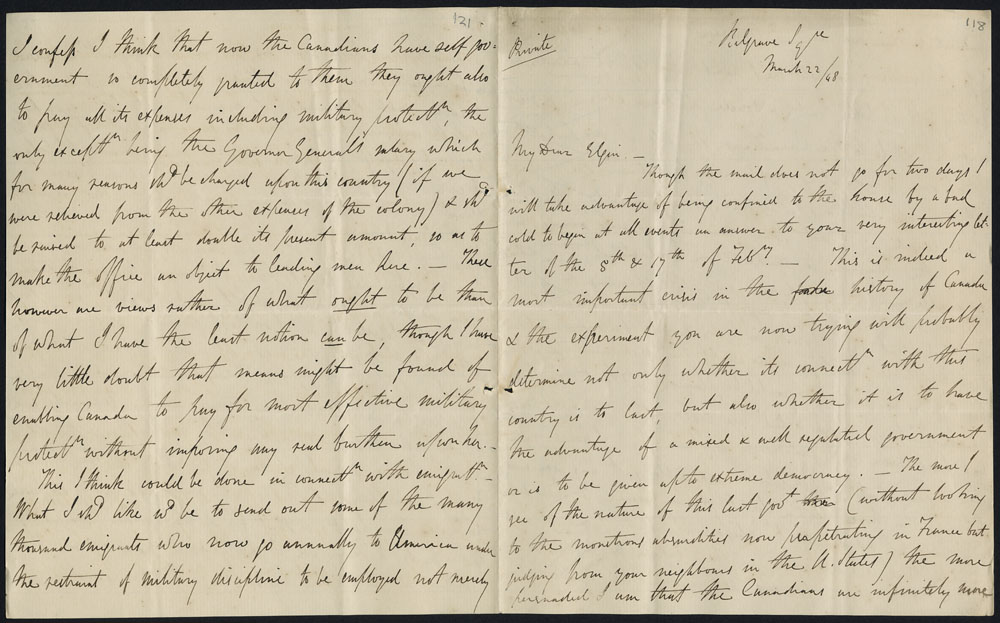 121.
I confess I think that now the Canadians have self gov-
ernment so completely granted to them they ought also
to pay all its expenses including military protectn, the
only exceptn being the Governor General's salary which
for many reasons shd be charged upon this country (if we
were relieved from the other expenses of the colony) & shd
be raised to at least double its present amount, so as to
make the office an object to leading men here. — These
however are views rather of what ought to be than
of what I have the least notion can be, though I have
very little doubt that means might be found of
enabling Canada to pay for most effective military
protectn without imposing any real burthen upon her. —
This I think could be done in connectn with emigratn —
What I shd like wd be to send out some of the many
thousand emigrants who now go annually to America under
the restraint of military discipline to be employed not merely
118
Private
Belgrave Sqre
March 22/48
My Dear Elgin —
Though the mail does not go for two days I
will take advantage of being confined to the house by a bad
cold to begin at all events an answer to your very interesting let-
ter of the 5th & 17th of Feby. — This is indeed a
most important crisis in the history of Canada
& the experiment you are now trying will probably
determine not only whether its connectn with this
country is to last, but also whether it is to have
the advantage of a mixed & well regulated government
or is to be given up to extreme democracy — The more I
see of the nature of this last govt (without looking
to the monstrous absurdities now perpetrating in France but
judging from your neighbours in the U. States) the more
persuaded I am that the Canadians are infinitely more